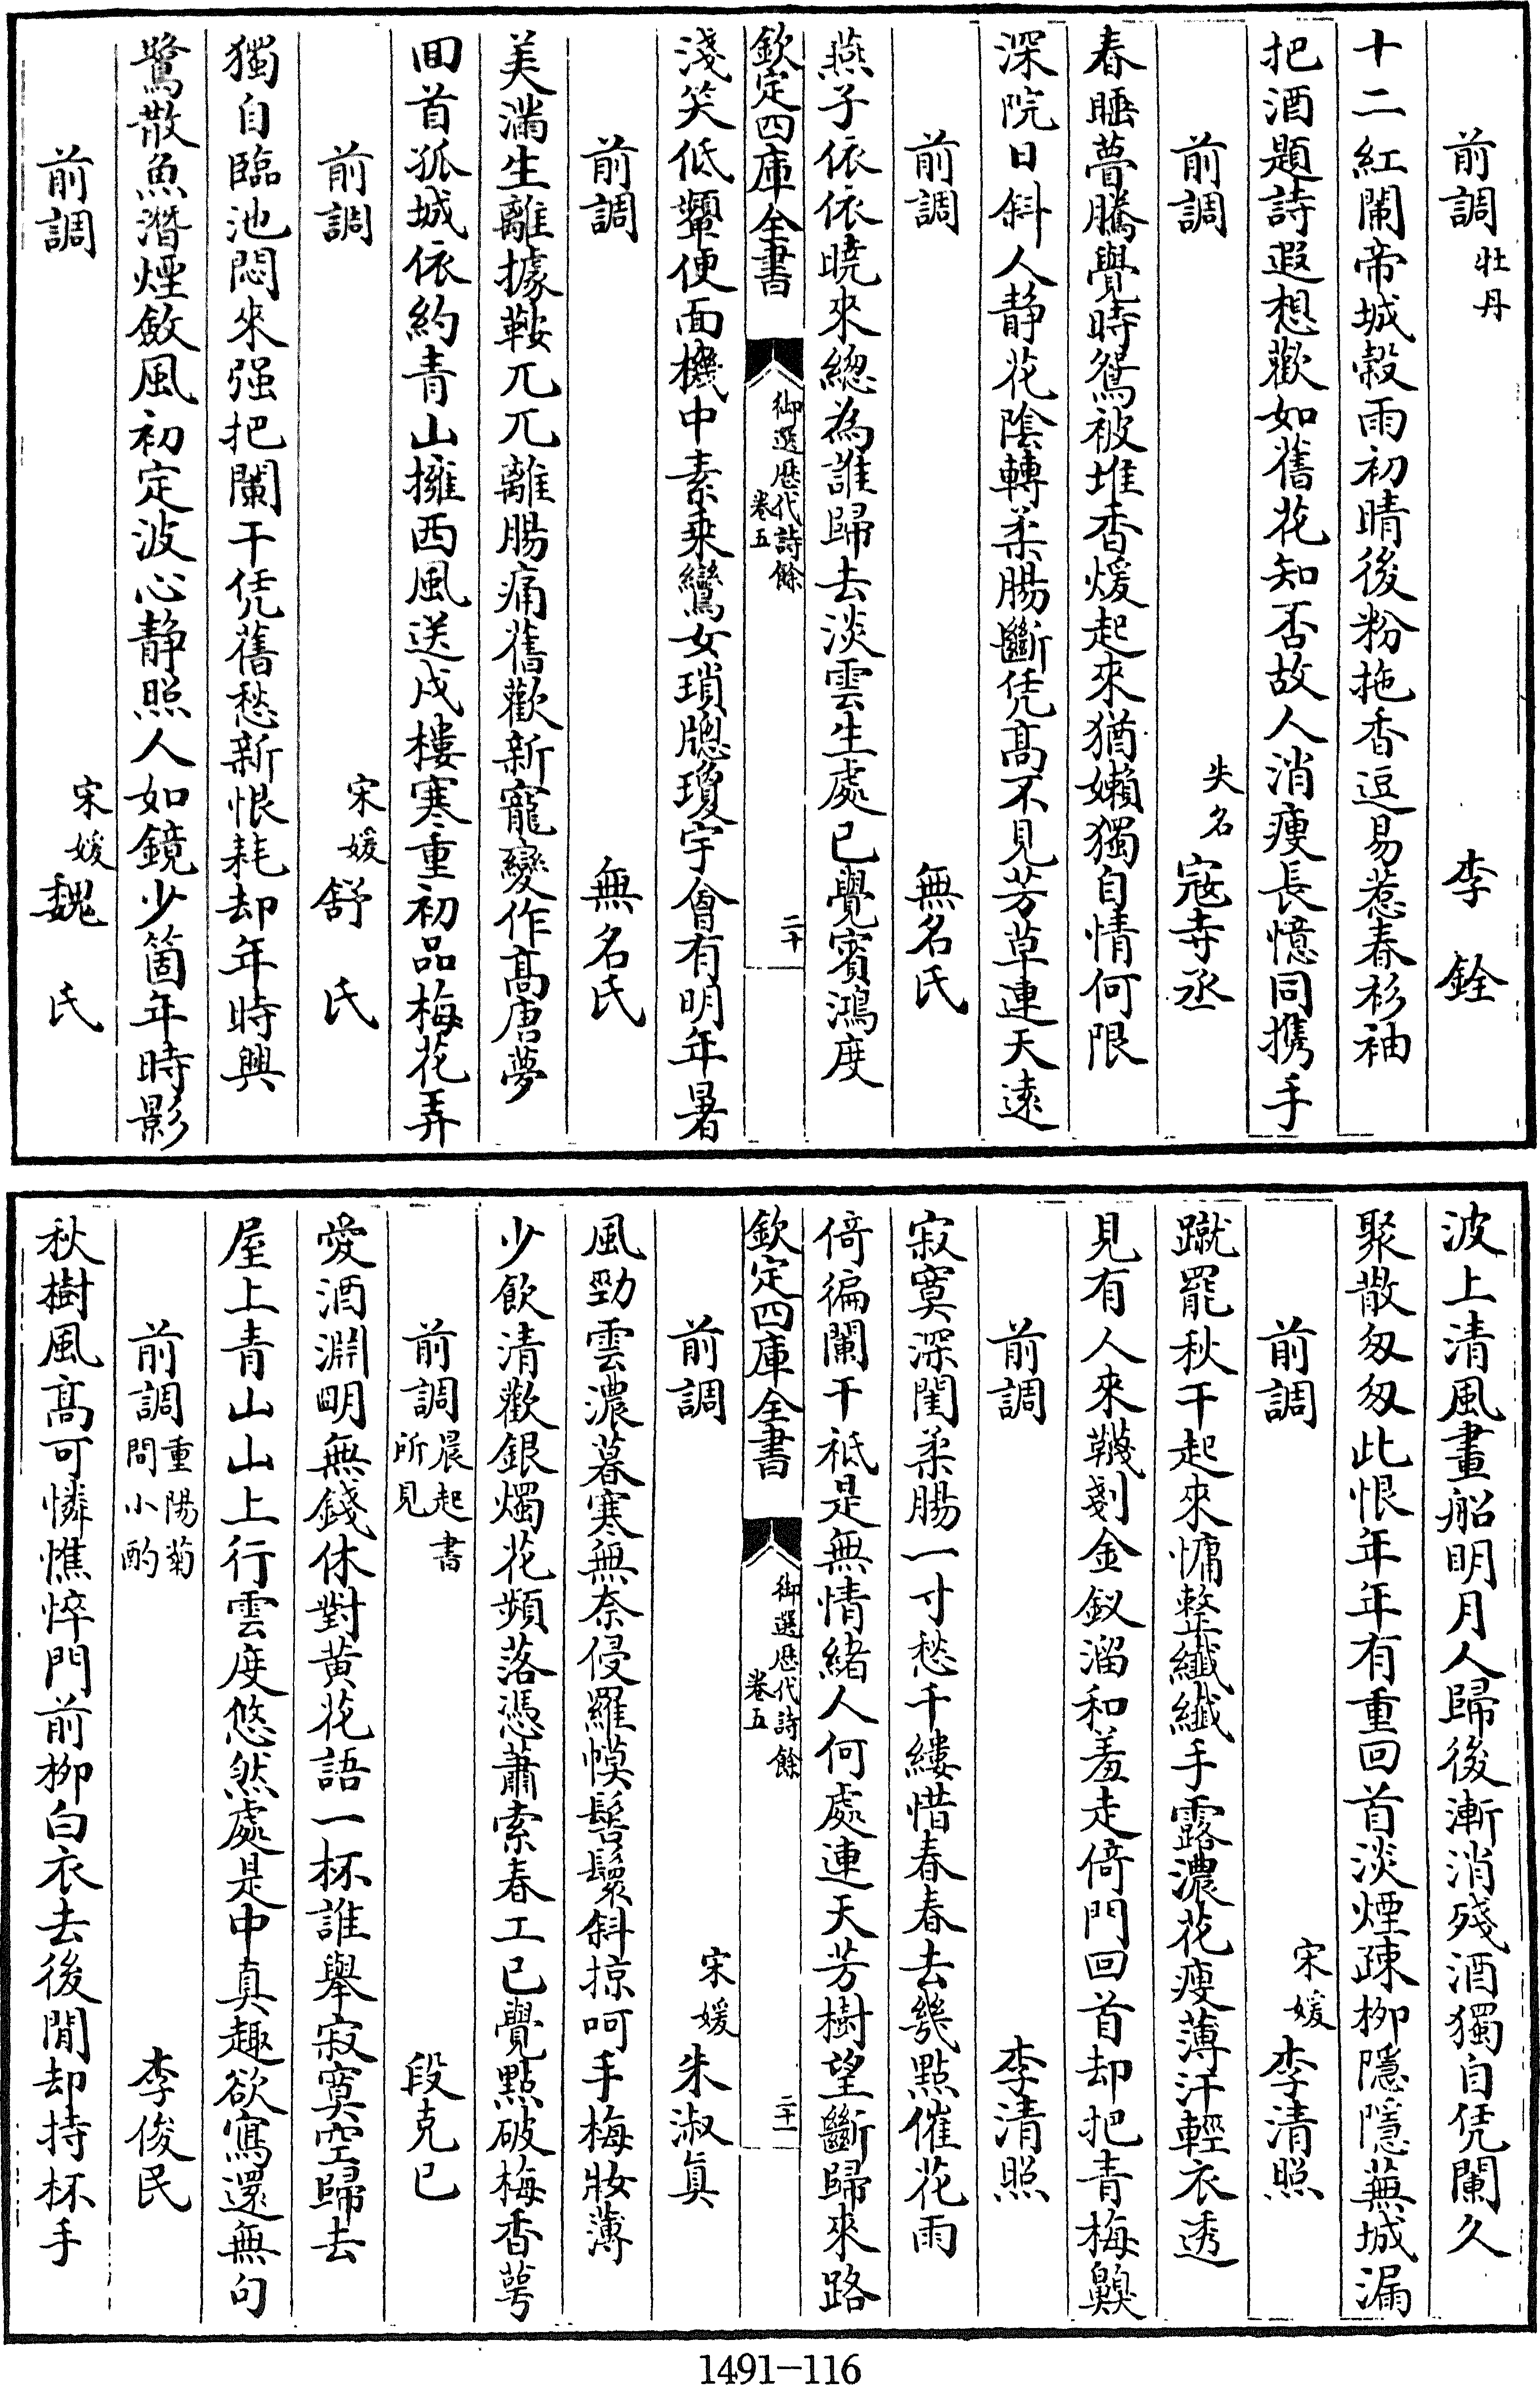 前調 牡丹 李銓
十二紅闌帝城穀雨初晴後粉拖香逗易惹春衫袖
把酒題詩遐想歡如舊花知否故人消瘦長憶同攜手
前調 失名 寇寺丞
春睡瞢騰覺時鴛被堆香煖起來猶嬾獨自情何限
深院日斜人静花陰轉柔腸斷凭髙不見芳草連天逺
前調 無名氏
燕子依依曉來總為誰歸去淡雲生處已覺賓鴻度
欽定四庫全書 御選歴代詩餘 卷五 二十
淺笑低顰便面機中素乗鸞女瑣牕瓊宇㑹有明年暑
前調 無名氏
美滿生離據鞍兀兀離腸痛舊歡新寵變作髙唐夢
回首孤城依約青山擁西風送戍樓寒重初品梅花弄
前調 宋媛 舒氏
獨自臨池悶來强把闌干凭舊愁新恨耗却年時興
鷺散魚潛煙斂風初定波心静照人如鏡少箇年時影
前調 宋媛 魏氏
波上清風畫船明月人歸後漸消殘酒獨自凭闌久
聚散匆匆此恨年年有重回首淡煙疎柳隱隱蕪城漏
前調 宋媛 李清照
蹴罷秋千起來慵整纎纎手露濃花瘦薄汗輕衣透
見有人來韈剗金釵溜和羞走倚門回首却把青梅齅
前調 李清照
寂寞深閨柔腸一寸愁千縷惜春春去幾點催花雨
倚徧闌干祗是無情緒人何處連天芳樹望斷歸來路
欽定四庫全書 御選歴代詩餘 卷五 二十一
前調 宋媛 朱淑真
風勁雲濃暮寒無奈侵羅幙髻鬟斜掠呵手梅妝薄
少飲清歡銀燭花頻落憑蕭索春工已覺點破梅香萼
前調 晨起書所見 段克已
愛酒淵明無錢休對黄花語一杯誰舉寂寞空歸去
屋上青山山上行雲度悠然處是中真趣欲寫還無句
前調 重陽菊間小酌 李俊民
秋樹風髙可憐憔悴門前柳白衣去後閒却持杯手
1491-116